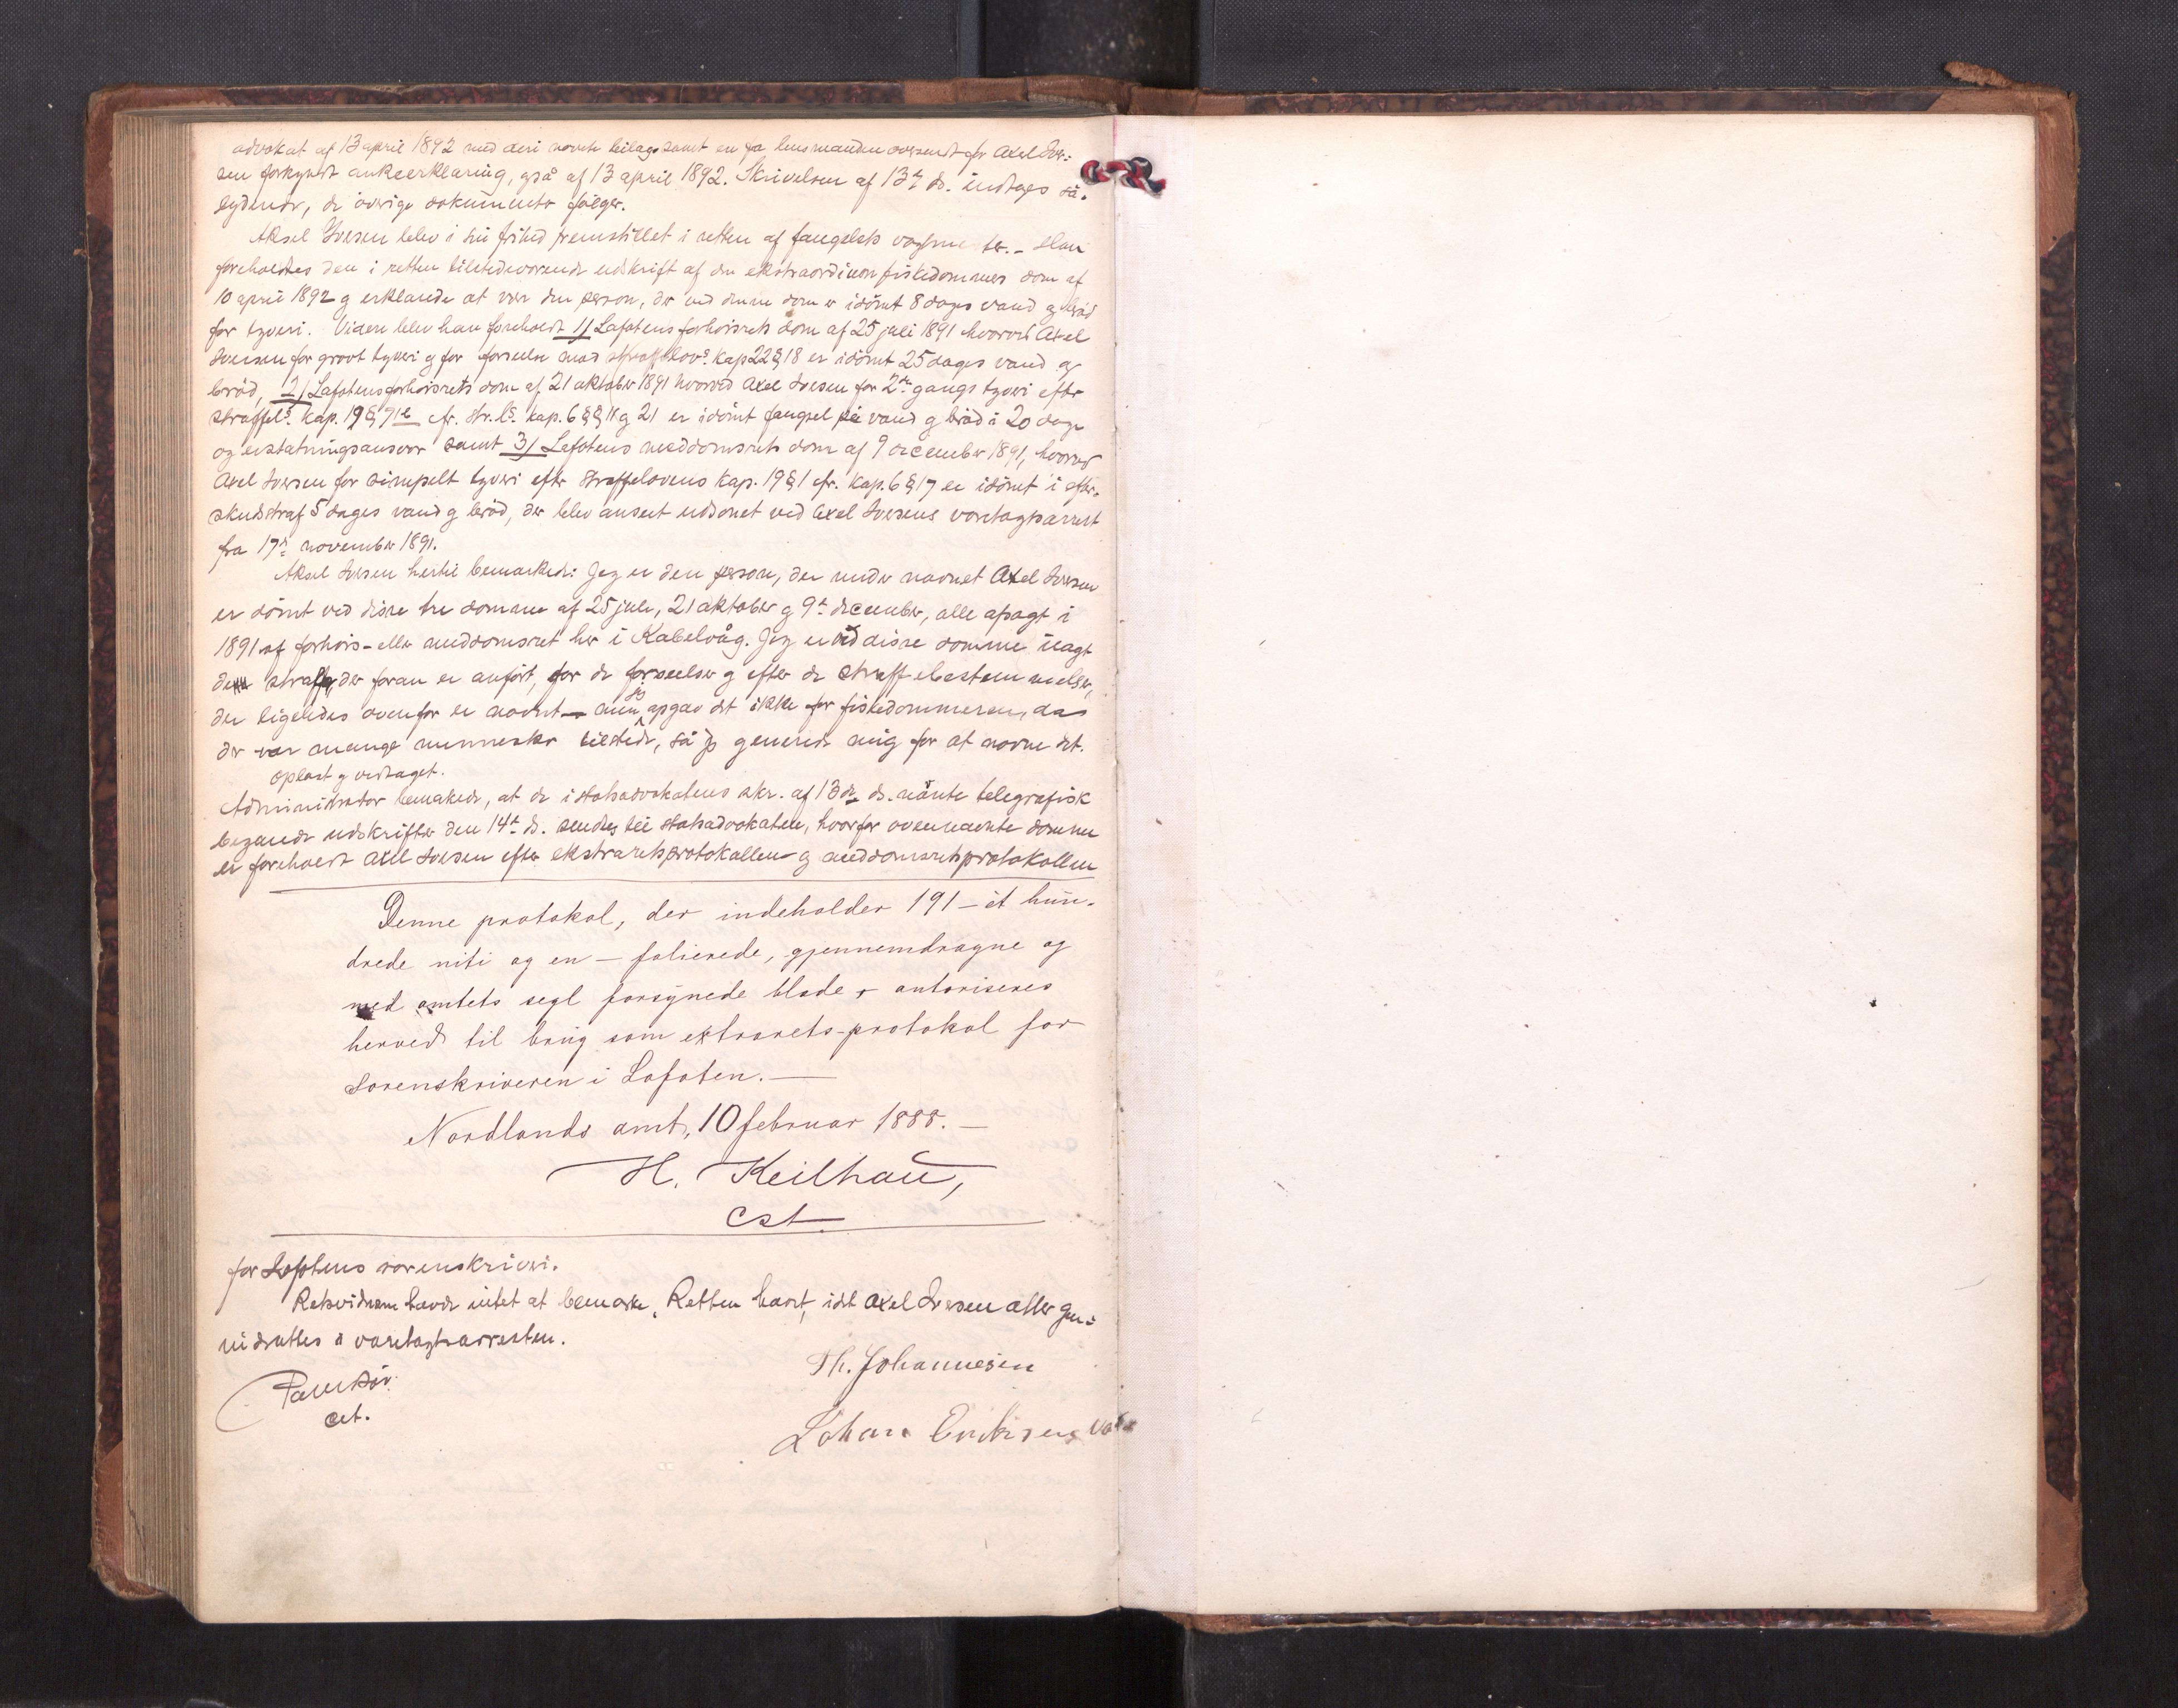 advokat af 13 april 1892 med deri nævnte bilag samt en fra lensmanden oversendt for Axel Iver-
sen forkyndt ankeerklæring, også af 13 april 1892. Skrivelsen af 13de ds. indtages så-
lydende, de øvrige dokumenter følger.
Aksel Iversen blev i sin frihed fremstillet i retten af fængslets vagtmester. - Han
foreholdtes den i retten tilstedeværende udskrift af den ekstraordinære fiskedommers dom af
10 april 1892 og erklærede at være den person, der ved denne dom er idömt 8 dages vand og bröd
for tyveri. Videre blev han foreholdt 1/ Lofotens forhörsrets dom af 25 juli 1891 hvorved Axel
Iversen for grovt tyveri og for forseelse mod straffelovs kap 22 § 18 er idömt 25 dages vand og
bröd, 2/ Lofotens forhörsrets dom af 21 oktober 1891 hvorved Axel Iversen for 2den gangs tyveri efter
straffels kap. 19 § 7 cfr. str.ls kap. 6 §§ 11 og 21 er idömt fængsel på vand og bröd i 20 dage
og erstatningsansvar samt 3/ Lofotens meddomsrets dom af 9 december 1891, hvorved
Axel Iversen for simpelt tyveri efter straffelovens kap. 19 § 1 cfr. kap. 6 § 17 er idömt i efter-
skudsstraf 5 dages vand og bröd, der blev anseet udsonet ved Axel Iversens varetægtsarrest
fra 17de november 1891.
Aksel Iversen hertil bemærkede: Jeg er den person, der under navnet Axel Iversen
er dömt ved disse tre domme af 25 juli, 21 oktober og 9de december, alle afsagt i
1891 af forhörs- eller meddomsret her i Kabelvåg. Jeg er ved disse domme ilagt
den straf, der foran er anfört, for de forseelser og efter de straffebestemmelser,
der ligeledes ovenfor er nævnt - men jeg opgav det ikke for fiskedommeren, da
der var mange mennesker tilstede, så jeg generede mig for at nævne det.
Oplæst og vedtaget.
Administrator bemærkede, at de i statsadvokatens skr. af 13de ds. nævnte telegrafisk
begjærede udskrifter den 14de ds. sendtes til statsadvokaten, hvorfor ovennævnte domme
er foreholdt Axel Iversen efter ekstraretsprotokollen og meddomsretsprotokollen
Denne protokol, der indeholder 191 - ét hun-
drede niti og en - folierede, gjennemdragne og
med amtets segl forsynede blade, autoriseres
herved til brug som extrarets-protokol for
Sorenskriveren i Lofoten. -
Nordlands amt, 10 februar 1888. -
H. Keilhau,
cst.
for Lofotens sorenskriveri.
Retsvidnerne havde intet at bemærke. Retten hævet, idet Axel Iversen atter gen-
nidsattes i varetægtsarresten.
cst.
Th. Johannesen
Johan Eriksen